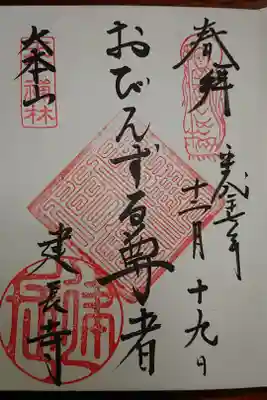 奉拝
平成二十七年
十二月十九日
おびんずる尊者
大本山
建長寺